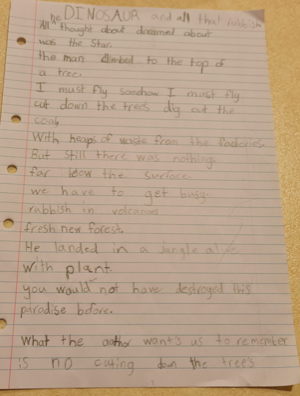 DINOSAUR and all that rubbish
All he thought about dreamed about
was the star.
the man climbed to the top of
a tree.
I must fly somhow I must fly
cut down the trees dig out the
coal
With heaps of waste from the factories.
But still there was nothing
far below the surface.
we have to get busy.
rabbish in volcanoes
fresh new forest.
He landed in a jungle alive
with plant.
you would not have destroyed this
paradise before.
What the author want's us to remember
is no cuting down the tree's